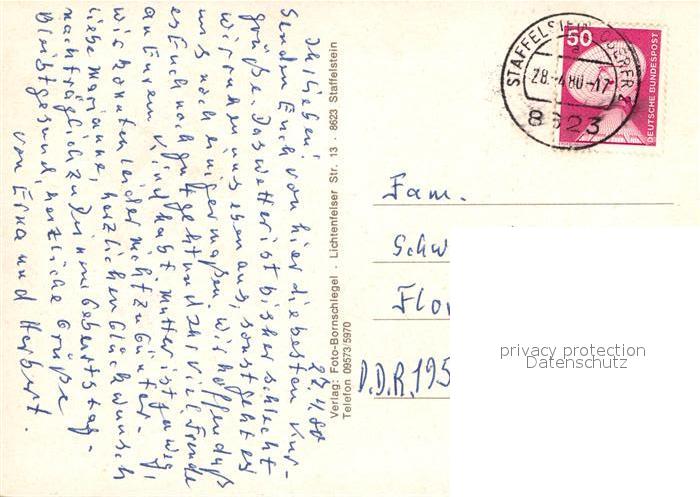 27.4.80
Ihr Lieben!
Senden Euch von hier die besten Kur-
grüße. Das Wetter ist bisher schlecht
wir ruhen uns eben aus, sonst geht es
uns noch einigermaßen. Wir hoffen daß
es Euch noch gut geht und Ihr viel Freude
an Eurem Kind habt. Mutter ist ja weg,
wir konnten leider nicht zu Günter.
Liebe Marianne, herzlichen Glückwunsch
nachträglich zu Deinem Geburtstag.
Bleibt gesund, herzliche Grüße
von Erna und Herbert.
Verlag: Foto-Bornschlegel · Lichtenfelser Str. 13 · 8623 Staffelstein
Telefon 09573/5970
STAFFELSTEIN
28.-4.80-17
8623
50
DEUTSCHE BUNDESPOST
Fam.
Schw
Flo
D.D.R. 195
privacy protection
Datenschutz